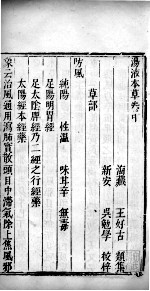 湯液本草卷中
海藏　王好古　類集
新安　吳勉學　校梓
草部
防風
純陽　性溫　味甘辛　無毒
足陽明胃經
足太陰脾經乃二經之行經藥
太陽經本經藥
象云治風通用瀉肺實散頭目中滯氣除上焦風邪